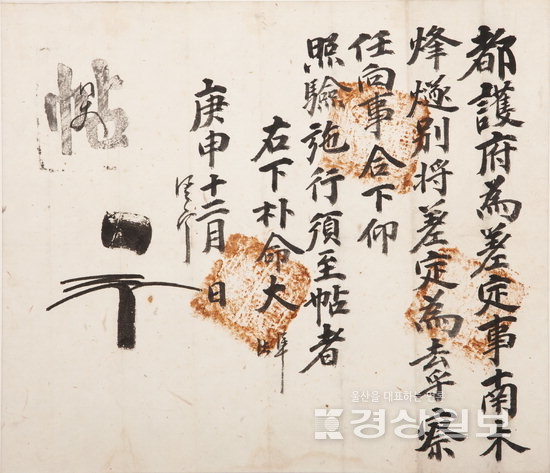 都護府為差定事南木
烽燧別將差定為去乎察
任向事合下仰
照驗施行須至帖者
右下朴命大
庚申十二月 日
帖
울산을 대표하는
경상일보